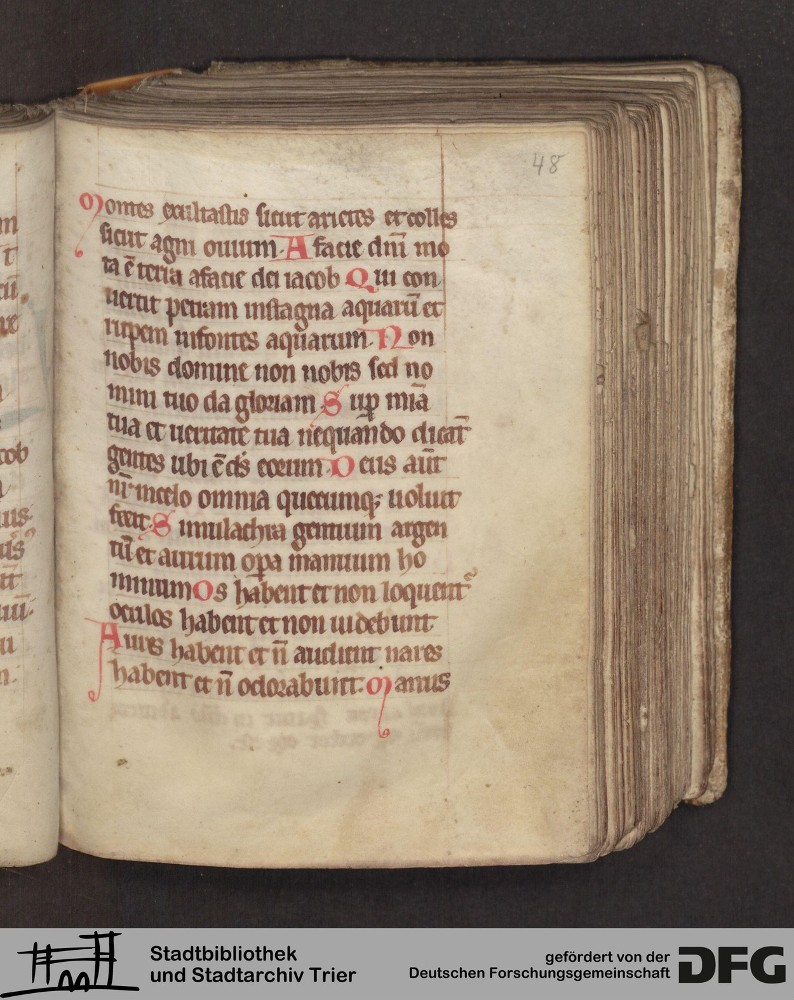 48
Montes exultastis sicut arietes et colles
sicut agni ouium. A facie dni mo
ta e terra afacie dei iacob Qui con
uertit petram instagna aquarū et
rupem infontes aquarum. Non
nobis domine non nobis sed no
mini tuo da gloriam Sup mīa
tua et ueritate tua nequando dicāt
gentes ubi ē ds eorum. Deus aūt
nr incelo omnia quecumq; uoluit
fecit. Simulachra gentium argen
tū et aurum opa manuum ho
minum Os habent et non loquent
oculos habent et non uidebunt
Aures habent et n̄ audient nares
habent et n̄ odorabunt. Manus
Stadtbibliothek
und Stadtarchiv Trier
gefördert von der
Deutschen Forschungsgemeinschaft
DFG